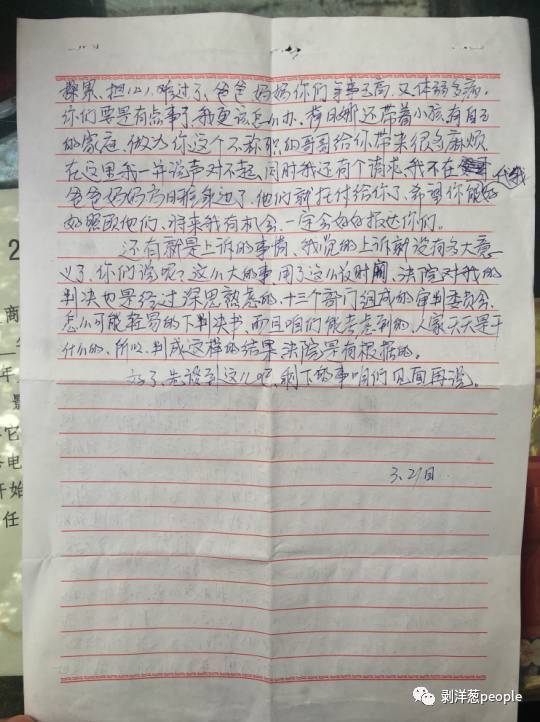 操累、担心、难过了、爸爸妈妈你们年事已高、又体弱多病、
你们要是有点事了、我更该怎么办、荷日娜还带着小孩有自己
的家庭、做为你这个不称职的哥哥给你带来很多麻烦
在这里我一并说声对不起、同时我还有个请求、我不在
爸爸妈妈方日龄身边了、他们就托付给你了、希望你能好代我
好照顾他们、将来我有机会、一定会好好报达你们。
还有就是上诉的事情、我觉的上诉都没有多大意
义了、你们说呢？这么大的事、用了这么长时间、法院对我的
判决也是经过深思熟虑的、十三个部门组成的审判委员会、
怎么可能轻易的下判决书、而且咱们能考虑到的、人家天天是干
什么的、所以、判成这样的结果法院是有根据的。
好了、先谈到这儿吧、剩下的事咱们见面再说。
3、21日
剥洋葱people
2
商
年
影
它
电
开始
任